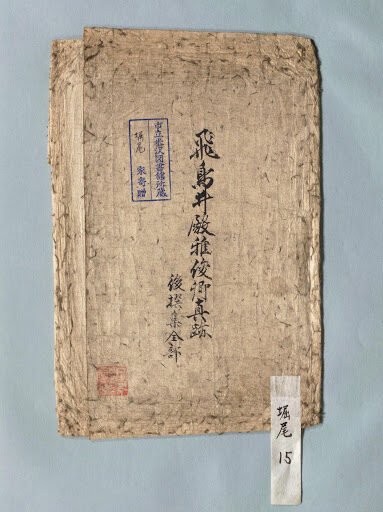 飛鳥井殿雅俊卿真跡
後撰集全部
市立米沢図書館所蔵
堀尾 家寄贈
堀尾
15